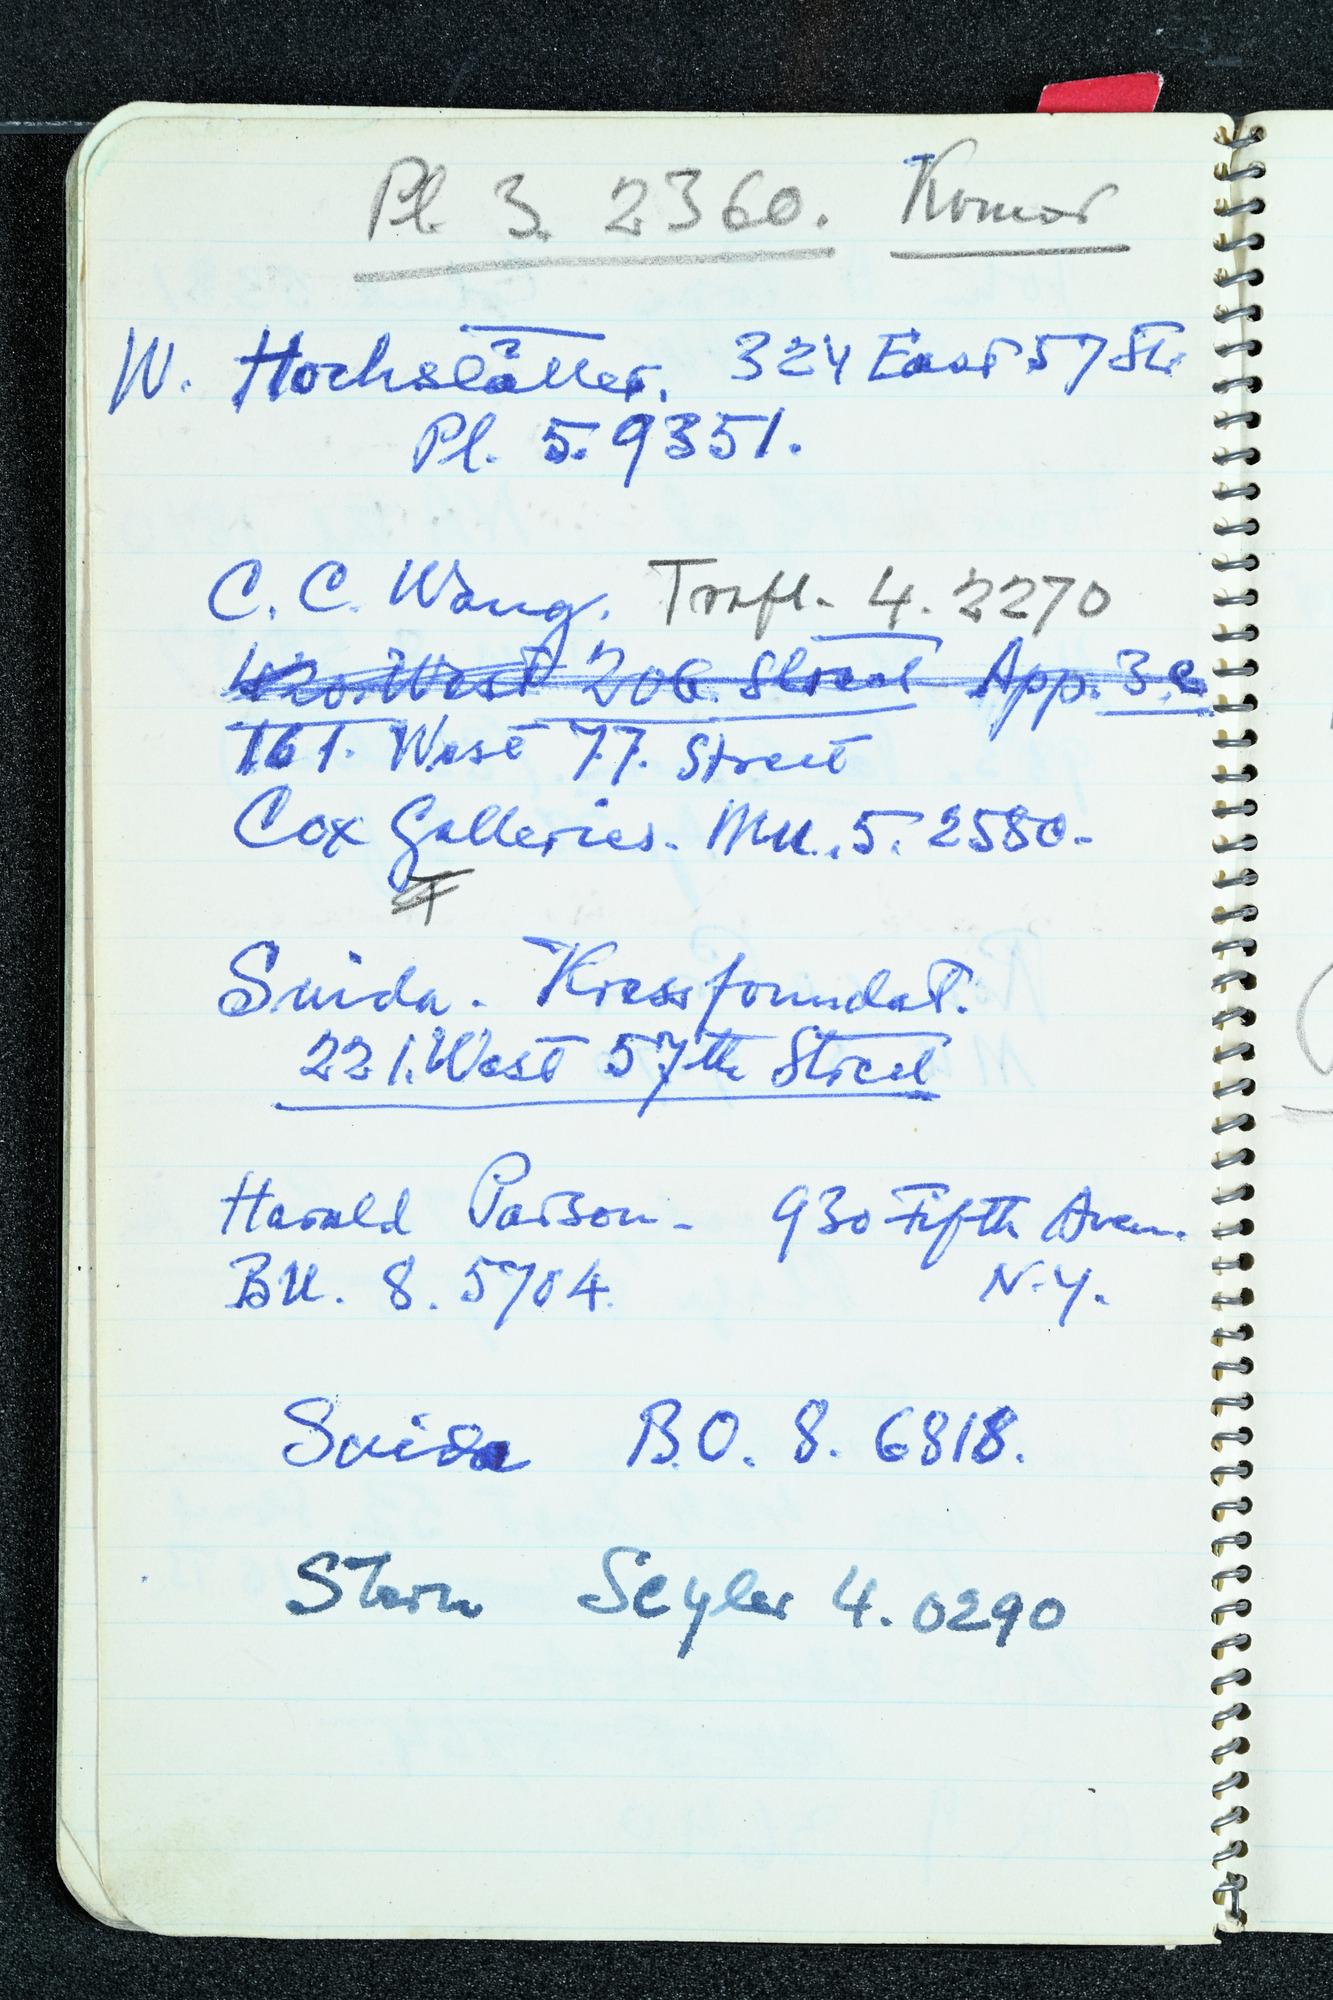 Pl. 3. 2360. Komor
W. Hochstätter. 324 East 57 Str
Pl. 5. 9351.
C. C. Wang. Trafl. 4. 2270
420. West 206. Street App. 3.e
161. West 77. Street
Cox Galleries. Mu. 5. 2580.
Suida. Kressfoundat.
221. West 57th Street
Harald Parson. 930 Fifth Aven.
BU. 8. 5704. N.Y.
Suida B.O. 8. 6818.
Stern Scyler 4. 0290